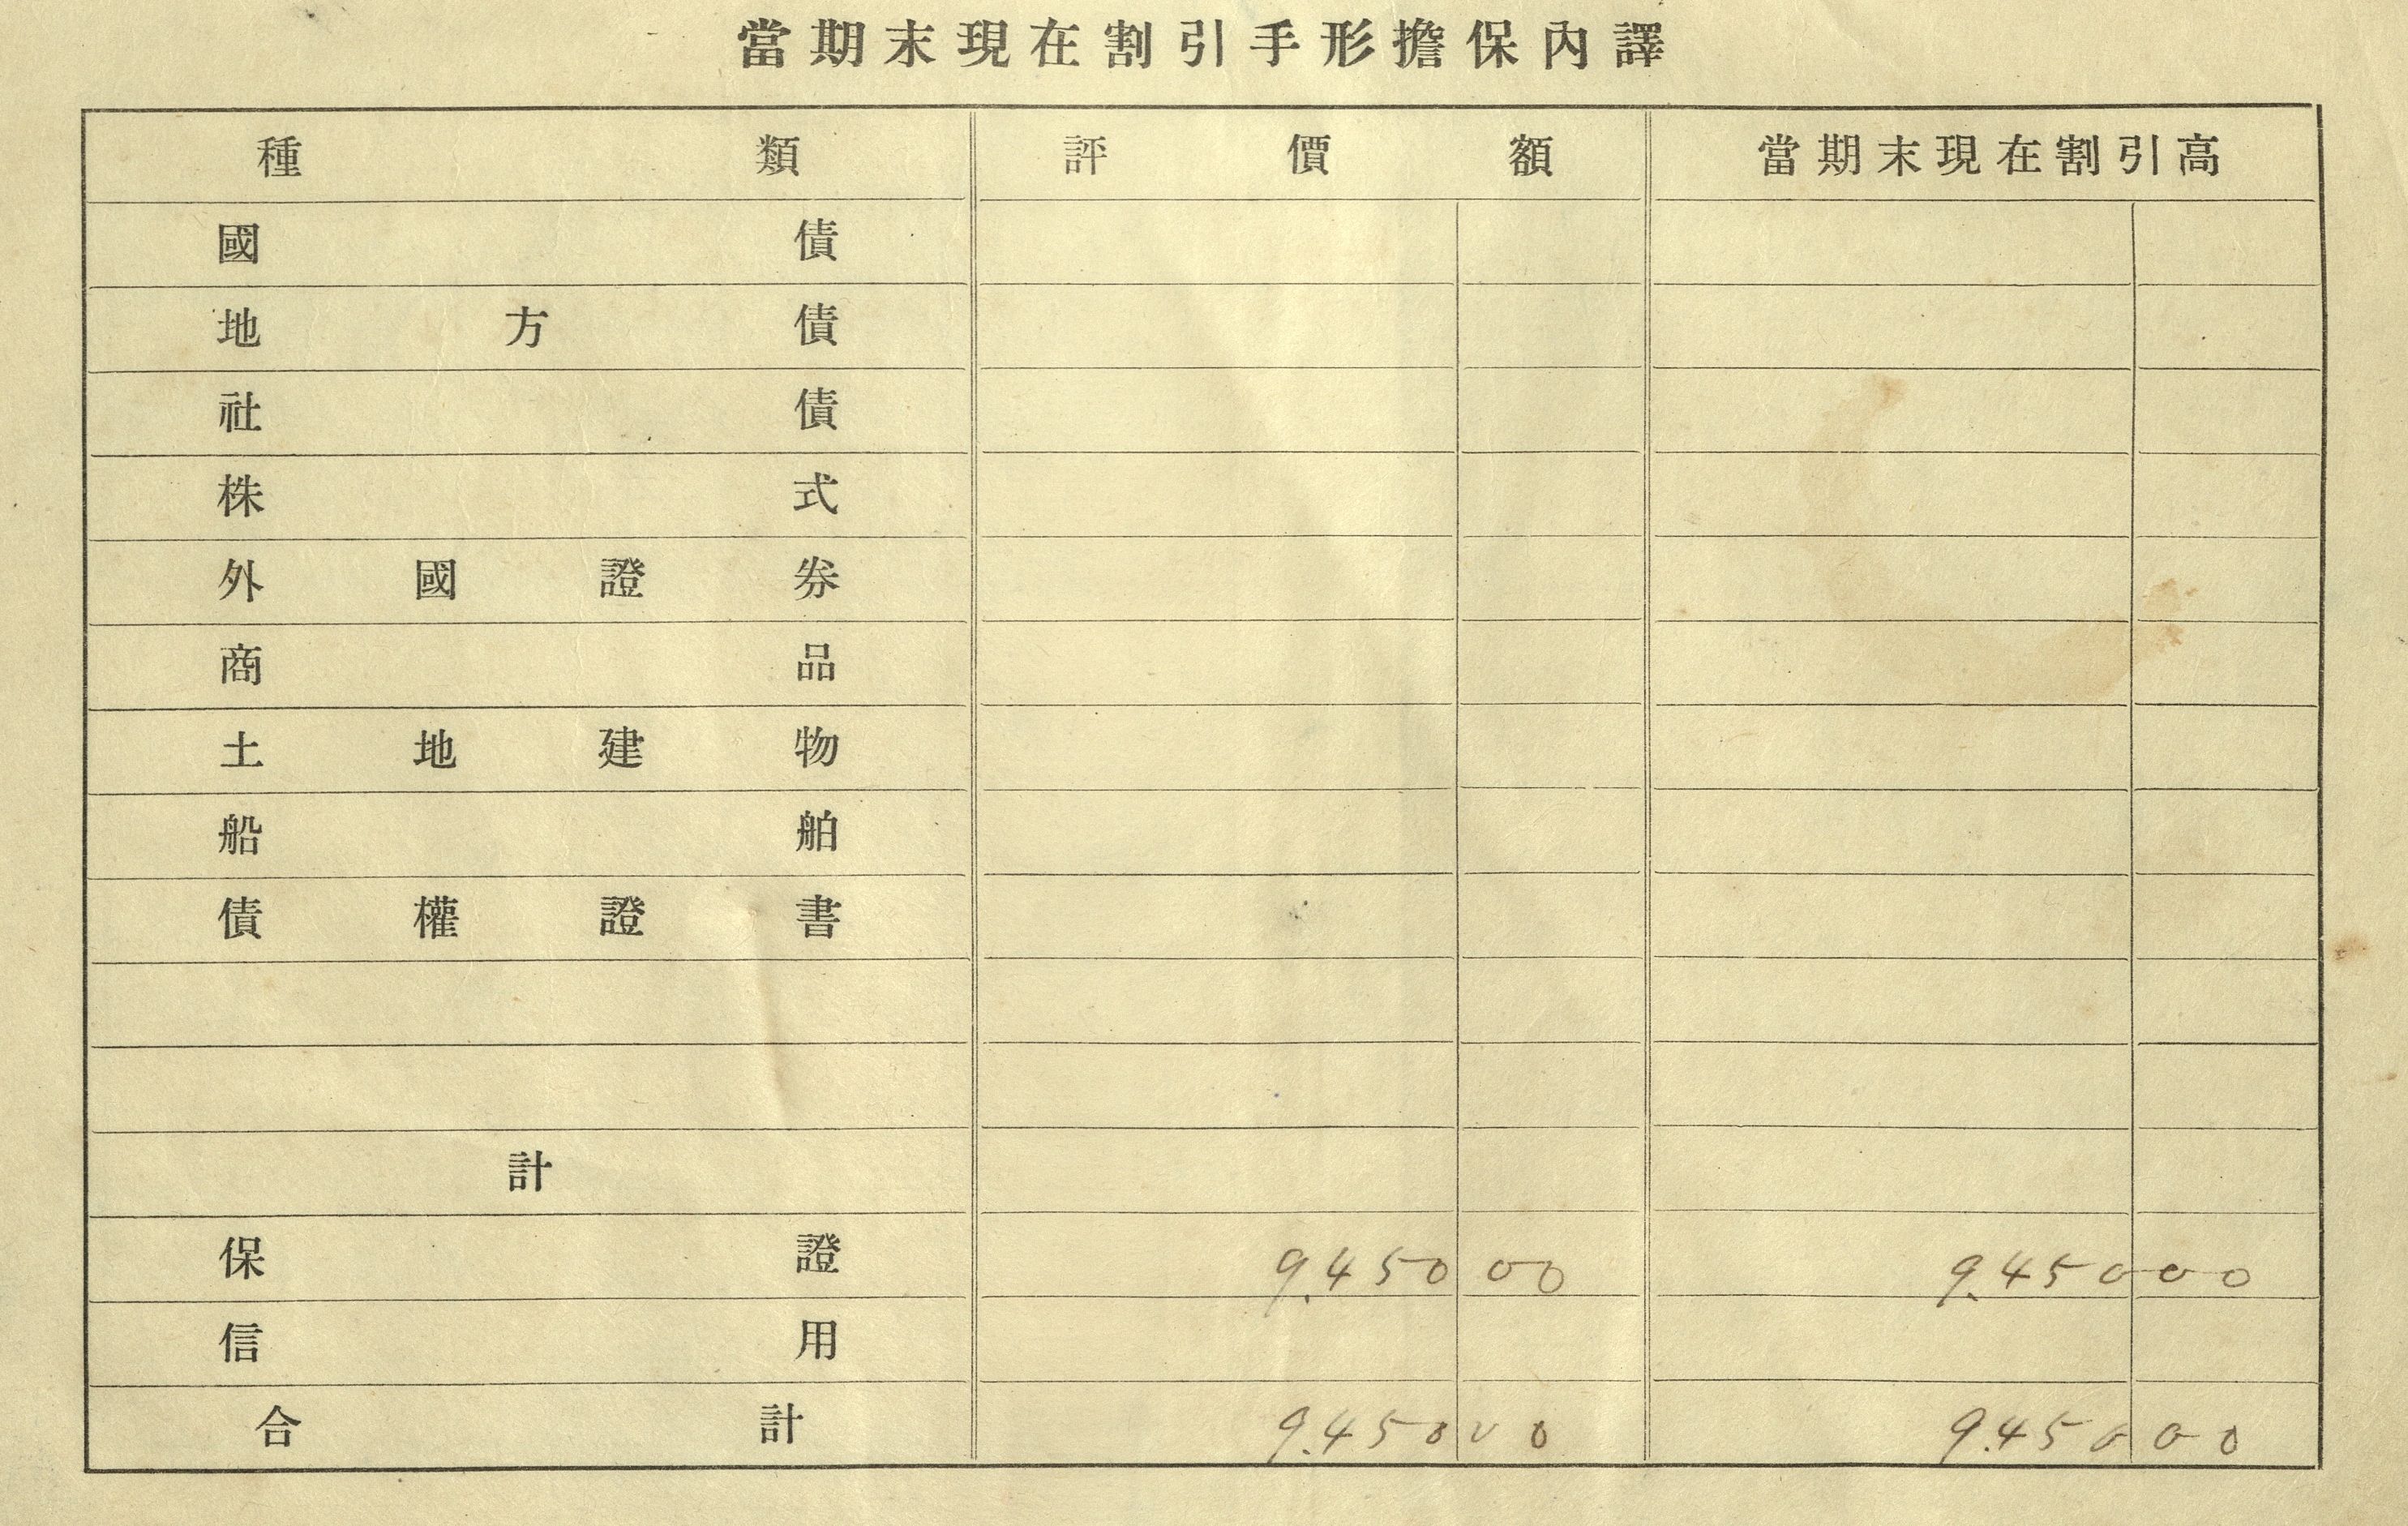 當期末現在割引手形擔保內譯
種類 評價額 當期末現在割引高
國債
地方債
社債
株式
外國證券
商品
土地建物
船舶
債權證書
計
保證 9.450 00 9.450 00
信用
合計 9.450 00 9.450 00